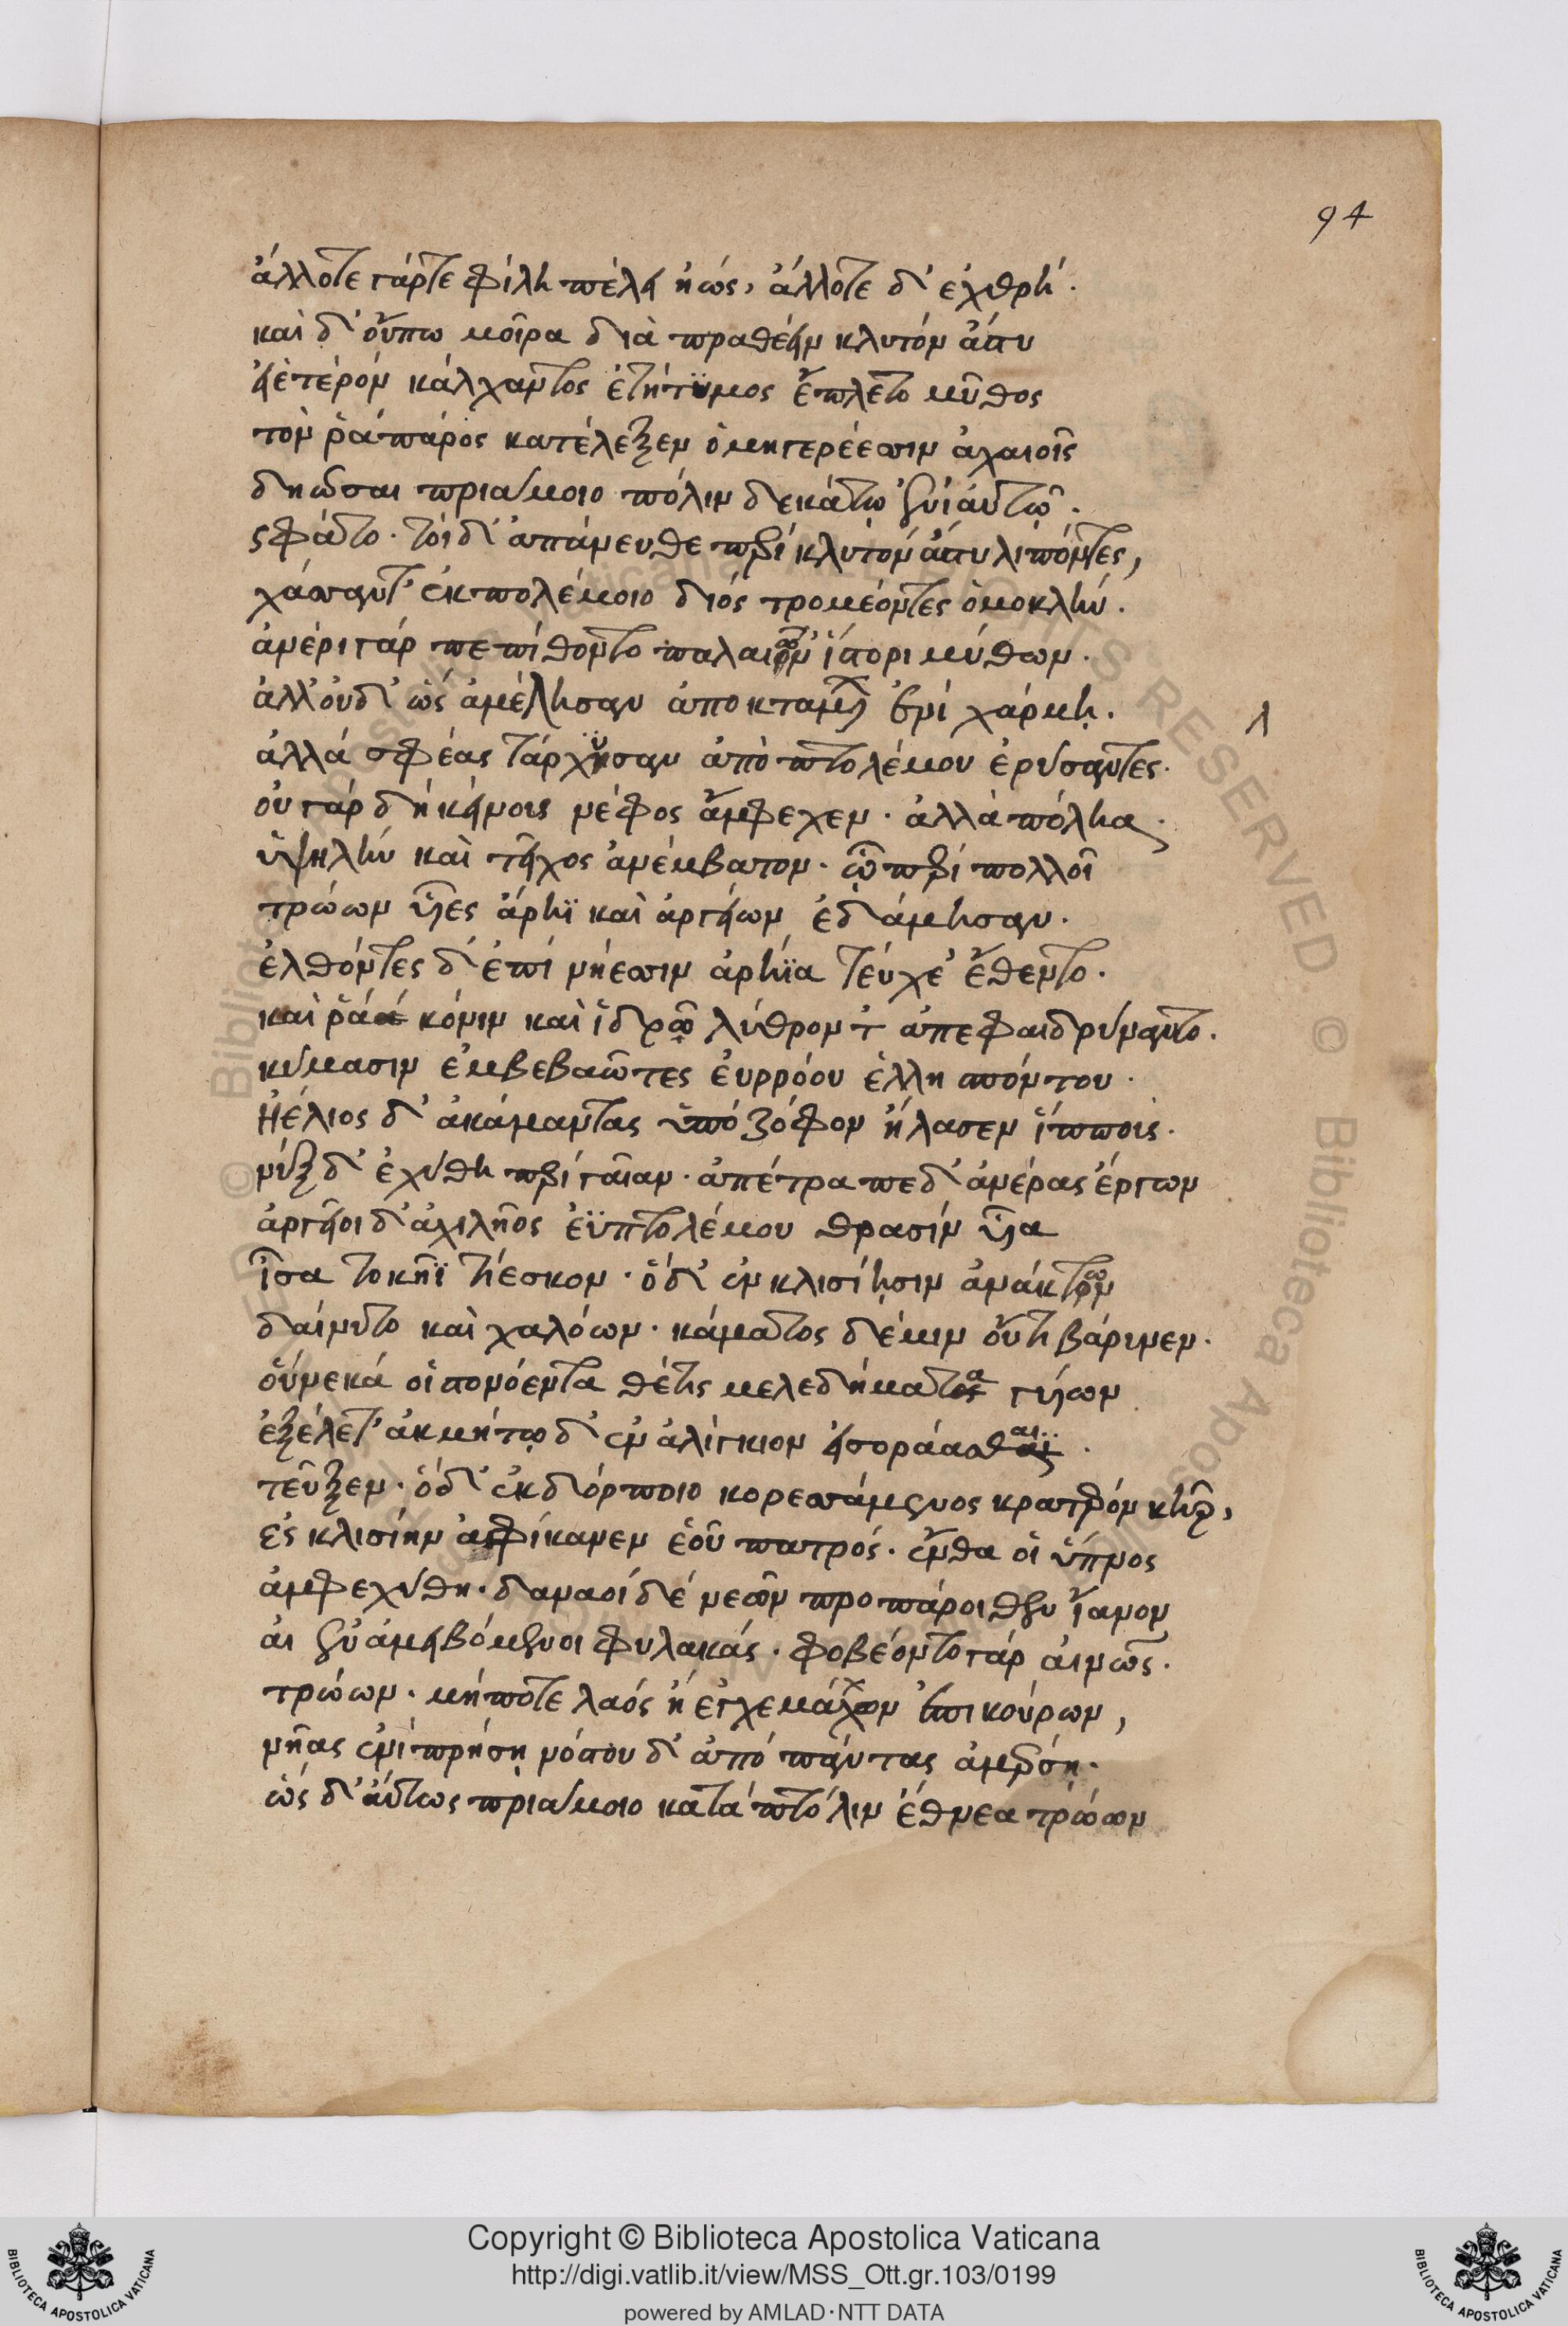 94
ἄλλοτε γάρτε φίλη πέλει ἠώς, ἄλλοτε δ' ἐχθρή.
καὶ δ' οὔπω μοῖρα διὰ πραθέειν κλυτόν ἄστυ
εἰἐτέρόν κάλχαντος ἐτήτϋμος ἔπλετο μῦθος
τόν ῥά πάρος κατέλεξεν ὁμηγερέεσσιν ἀχαιοῖς
δηῶσαι πριάμοιο πόλιν δεκάτῳ ἐνιάυτῷ.
ςφάτο. τοὶ δ' ἀπάνευθε περί κλυτόν ἄστυ λιπόντες,
χάσσαντ' ἐκ πολέμοιο διός τρομέοντες ὁμοκλήν.
ἀνέρι γάρ πεπίθοντο παλαιῶν ἵστορι μύθων.
ἀλλ' οὐδ' ὡς ἀμέλησαν ἀποκταμένων ἐνί χάρμῃ.
λ
ἀλλά σφέας τάρχυσαν ἀπὸ πτολέμου ἐρύσαντες.
οὐ γάρ δή κείνοις νέφος ἄμφεχεν. ἀλλὰ πόληα.
ὑψηλήν καὶ τεῖχος ἀνέμβατον. ᾧ περί πολλοῖ
τρώων υἷες ἄρηϊ καὶ ἀργείων ἐδάμησαν.
ἐλθόντες δ' ἐπί νήεσσιν ἀρήϊα τεύχε' ἔθεντο.
καὶ ῥά κόνιν καὶ ἱδρῶ λύθρον τ ἀπεφαιδρύναντο.
κύμασιν ἐμβεβαῶτες ἐυρρόου ἑλλησπόντου.
Ηέλιος δ' ἀκάμαντας ὑπό ζόφον ἤλασεν ἵπποις.
νύξ δ' ἐχύθη περί γαῖαν. ἀπέτραπε δ' ἀνέρας ἔργων
ἀργεῖοι δ' ἀχιλῆος ἐϋπτολέμου θρασύν υἷα
ἶσα τοκῆϊ τίεσκον. ὁ δ' ἐν κλισίῃσιν ἀνάκτων
δαίνυτο καὶ χαλόων. κάματος δέ μιν οὔτι βάρυνεν.
οὕνεκά οἱ στονόεντα θέτις μελεδήματα γυίων
ἐξέλετ' ἀκμήτῳ δ' ἐν ἀλίγκιον εἰσοράασθαι.
τεῦξεν. ὁ δ' ἐκ δόρποιο κορεσσάμενος κρατερόν κῆρ,
ἐς κλισίην ἀφίκανεν ἑοῦ πατρός. ἔνθα οἱ ὕπνος
ἀμφεχύθη. δαναοί δέ νεῶν προπάροιθεν ἴαυον
αι ἐν ἀμειβόμενοι φυλακάς. φοβέοντο γάρ αἰνῶς.
τρώων. μήποτε λαός ἠ εγχεμάχων ἐπικούρων,
νῆας ἐνίπρήσῃ νόστου δ' ἀπό πάντας ἀμέρσῃ.
ὡς δ' αὔτως πριάμοιο κατά πτόλιν ἔθνεα τρώων
Copyright © Biblioteca Apostolica Vaticana
http://digi.vatlib.it/view/MSS_Ott.gr.103/0199
powered by AMLAD·NTT DATA
BIBLIOTECA APOSTOLICA VATICANA
BIBLIOTECA APOSTOLICA VATICANA